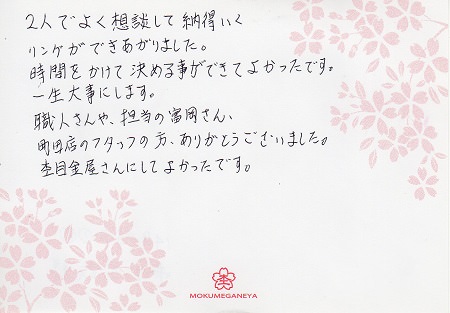 2人でよく想談して納得いく
リングができあがりました。
時間をかけて決める事ができてよかったです。
一生大事にします。
職人さんや、担当の富岡さん、
町田店のスタッフの方、ありがとうございました。
杢目金屋さんにしてよかったです。
MOKUMEGANEYA